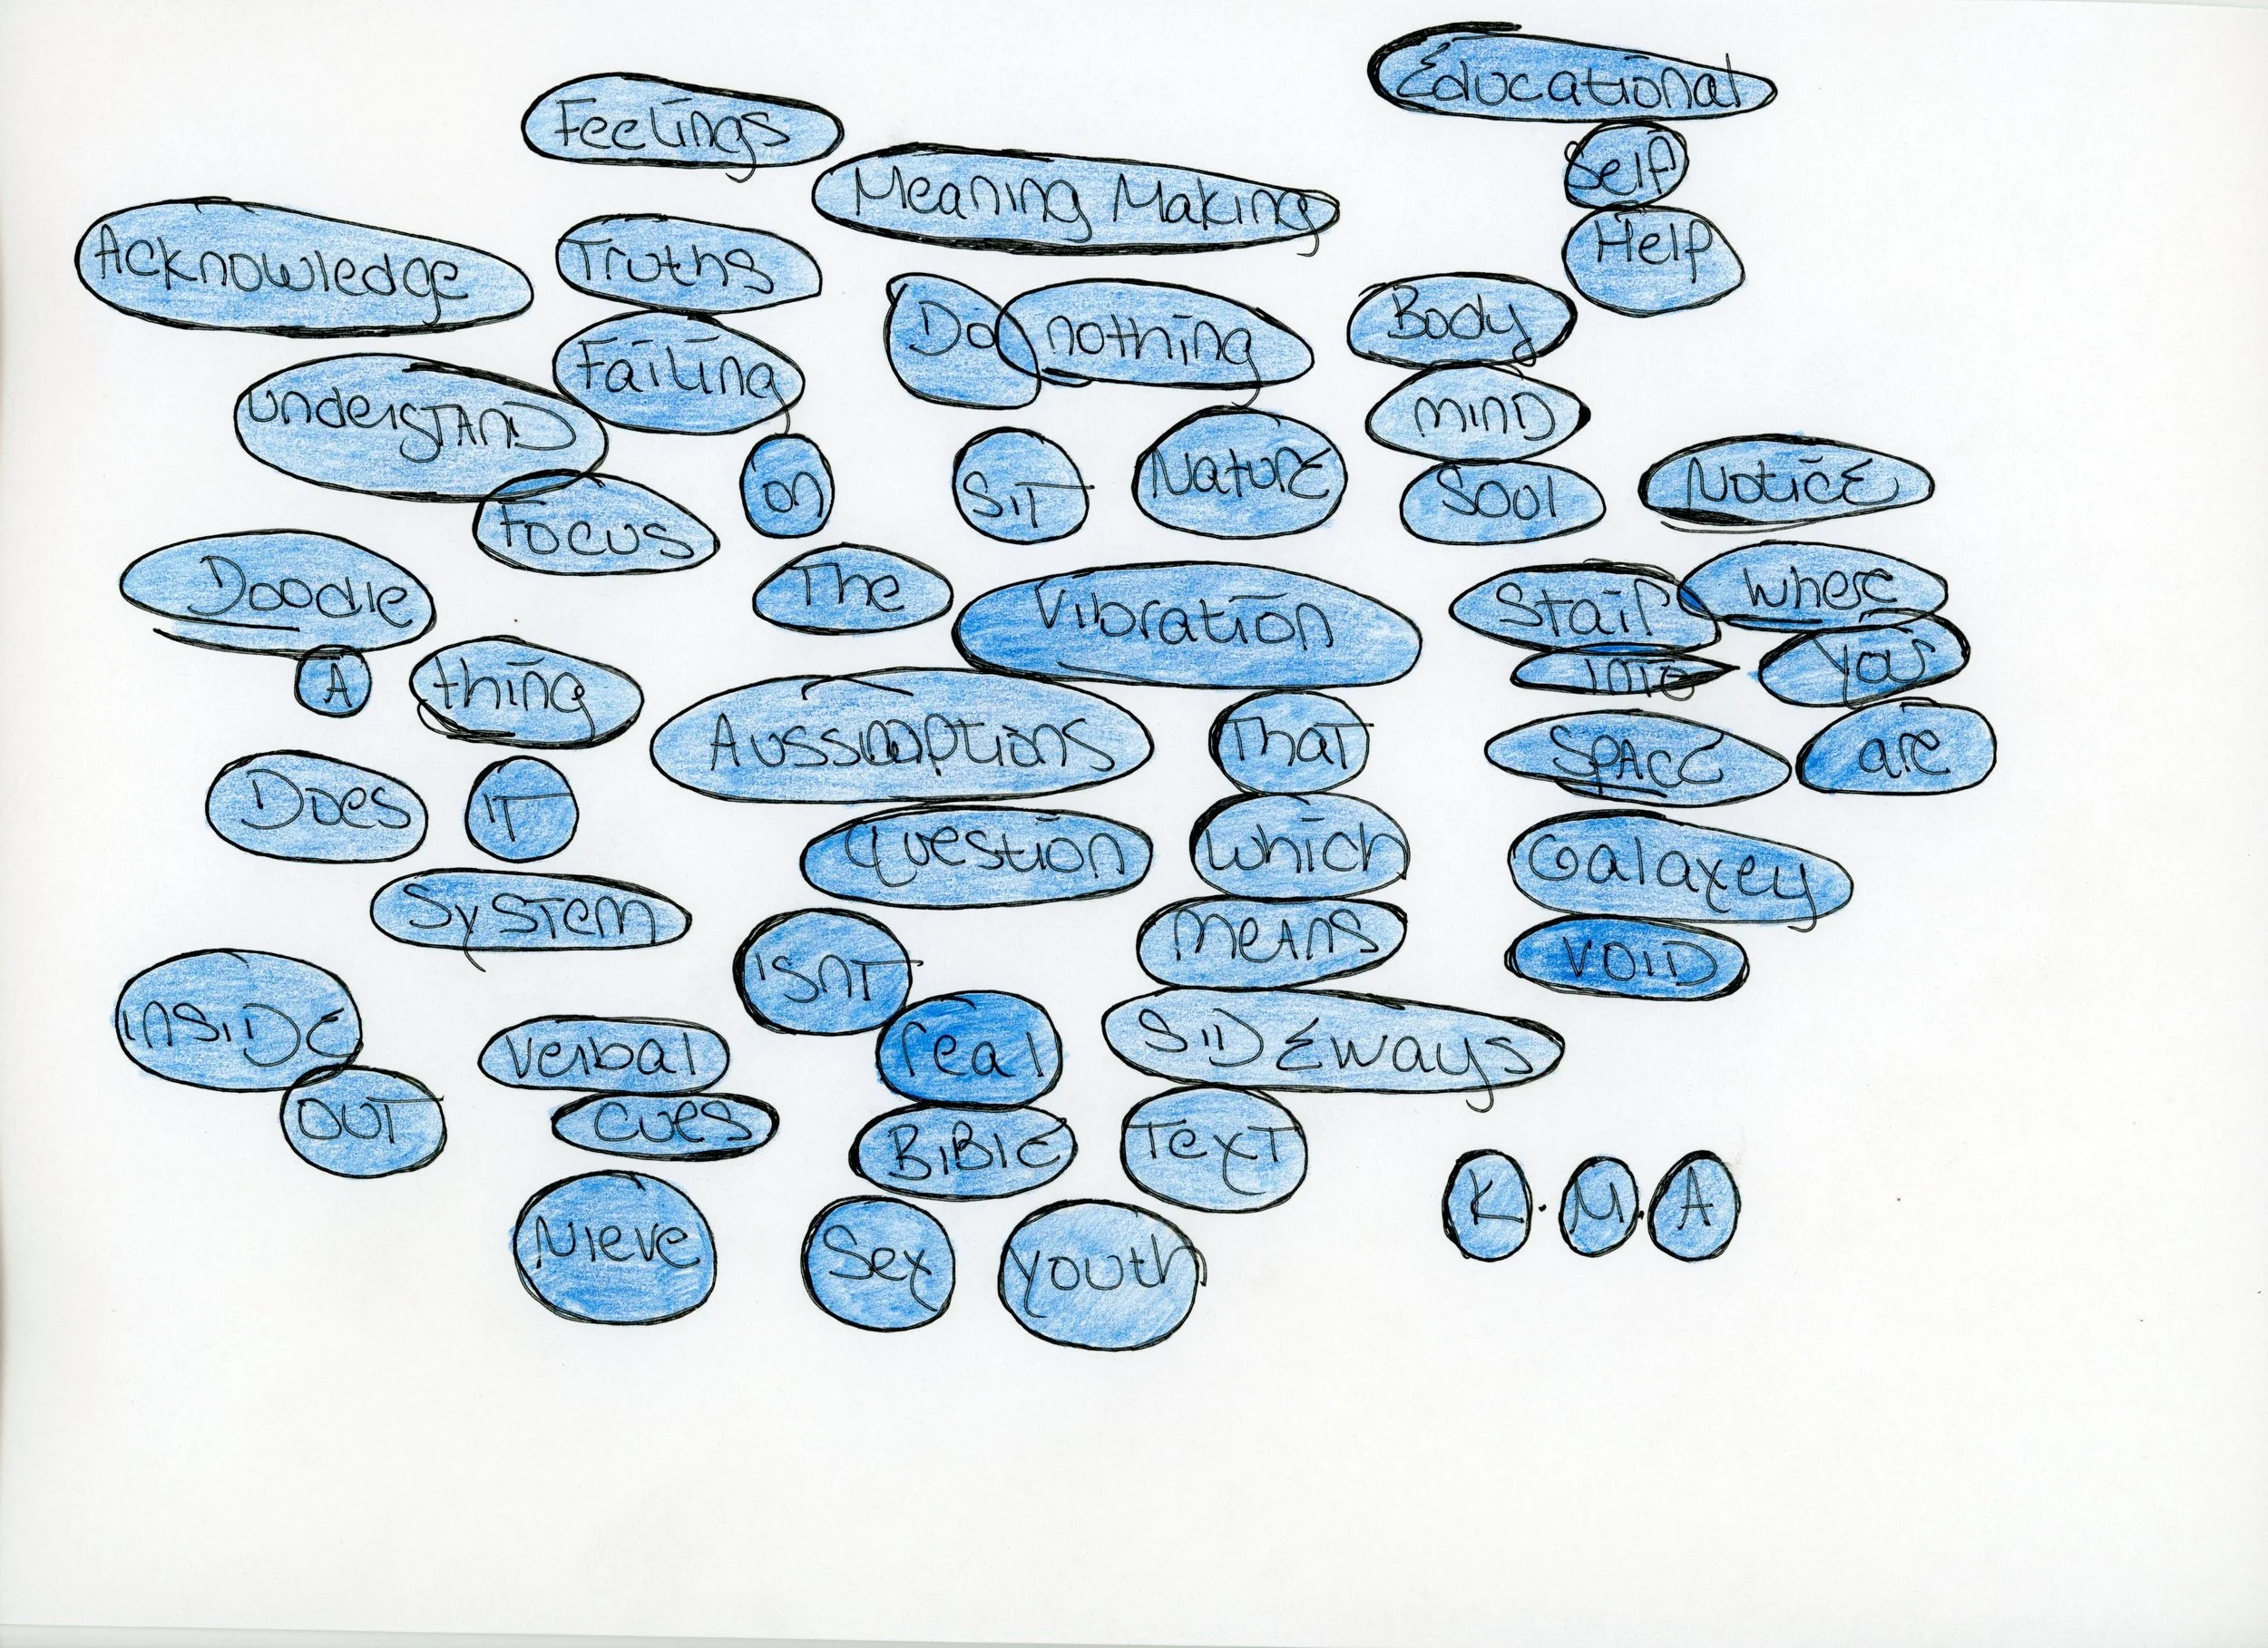 Educational
Feelings
Self
Meaning Making
Help
Acknowledge
Truths
Do nothing
Body
Failing
understand
MIND
on
SIT
Nature
Soul
Notice
Focus
Doodle
The
Vibration
Stair
where
A
thing
INTO
you
Aussumptions
That
SPACE
are
Does
IT
Question
which
Galaxey
System
means
ISNT
VOID
INSIDE
Verbal
real
SIDEways
OUT
cues
BIBLE
Text
Nieve
Sex
youth
K.M.A